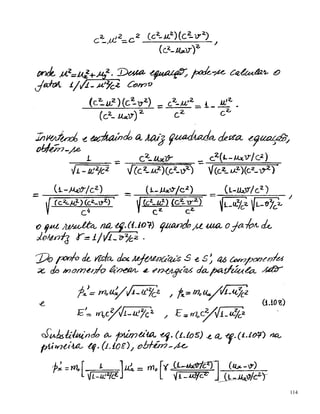 c² - u'² = c² (c²-u²)(c²-v²) / (c²-uₓv)² ,
onde u² = uₓ² + u_y². Dessa equação, pode-se calcular o
fator 1/√1-u'²/c² como
(c²-u²)(c²-v²) / (c²-uₓv)² = c²-u'² / c² = 1 - u'²/c² .
Invertendo e extraindo a raiz quadrada dessa equação,
obtém-se
1/√1-u'²/c² = c²-uₓv / √(c²-u²)(c²-v²) = c²(1-uₓv/c²) / √(c²-u²)(c²-v²)
= (1-uₓv/c²) / √(c²-u²)(c²-v²)/c⁴ = (1-uₓv/c²) / √(c²-u²)/c² (c²-v²)/c² = (1-uₓv/c²) / √1-u²/c² √1-v²/c² ,
o que resulta na eq. (1.107) quando se usa o fator de
Lorentz γ = 1/√1-v²/c² .
Do ponto de vista dos referenciais S e S', as componentes
x do momento linear e energias da partícula são
pₓ' = m₀uₓ'/√1-u'²/c² , pₓ = m₀uₓ/√1-u²/c²
e (1.108)
E' = m₀c²/√1-u'²/c² , E = m₀c²/√1-u²/c²
Substituindo a primeira eq. (1.105) e a eq. (1.107) na
primeira eq. (1.108), obtém-se
pₓ' = m₀ [1/√1-u'²/c²] uₓ' = m₀ [γ (1-uₓv/c²)/√1-u²/c²] (uₓ-v)/(1-uₓv/c²)
114